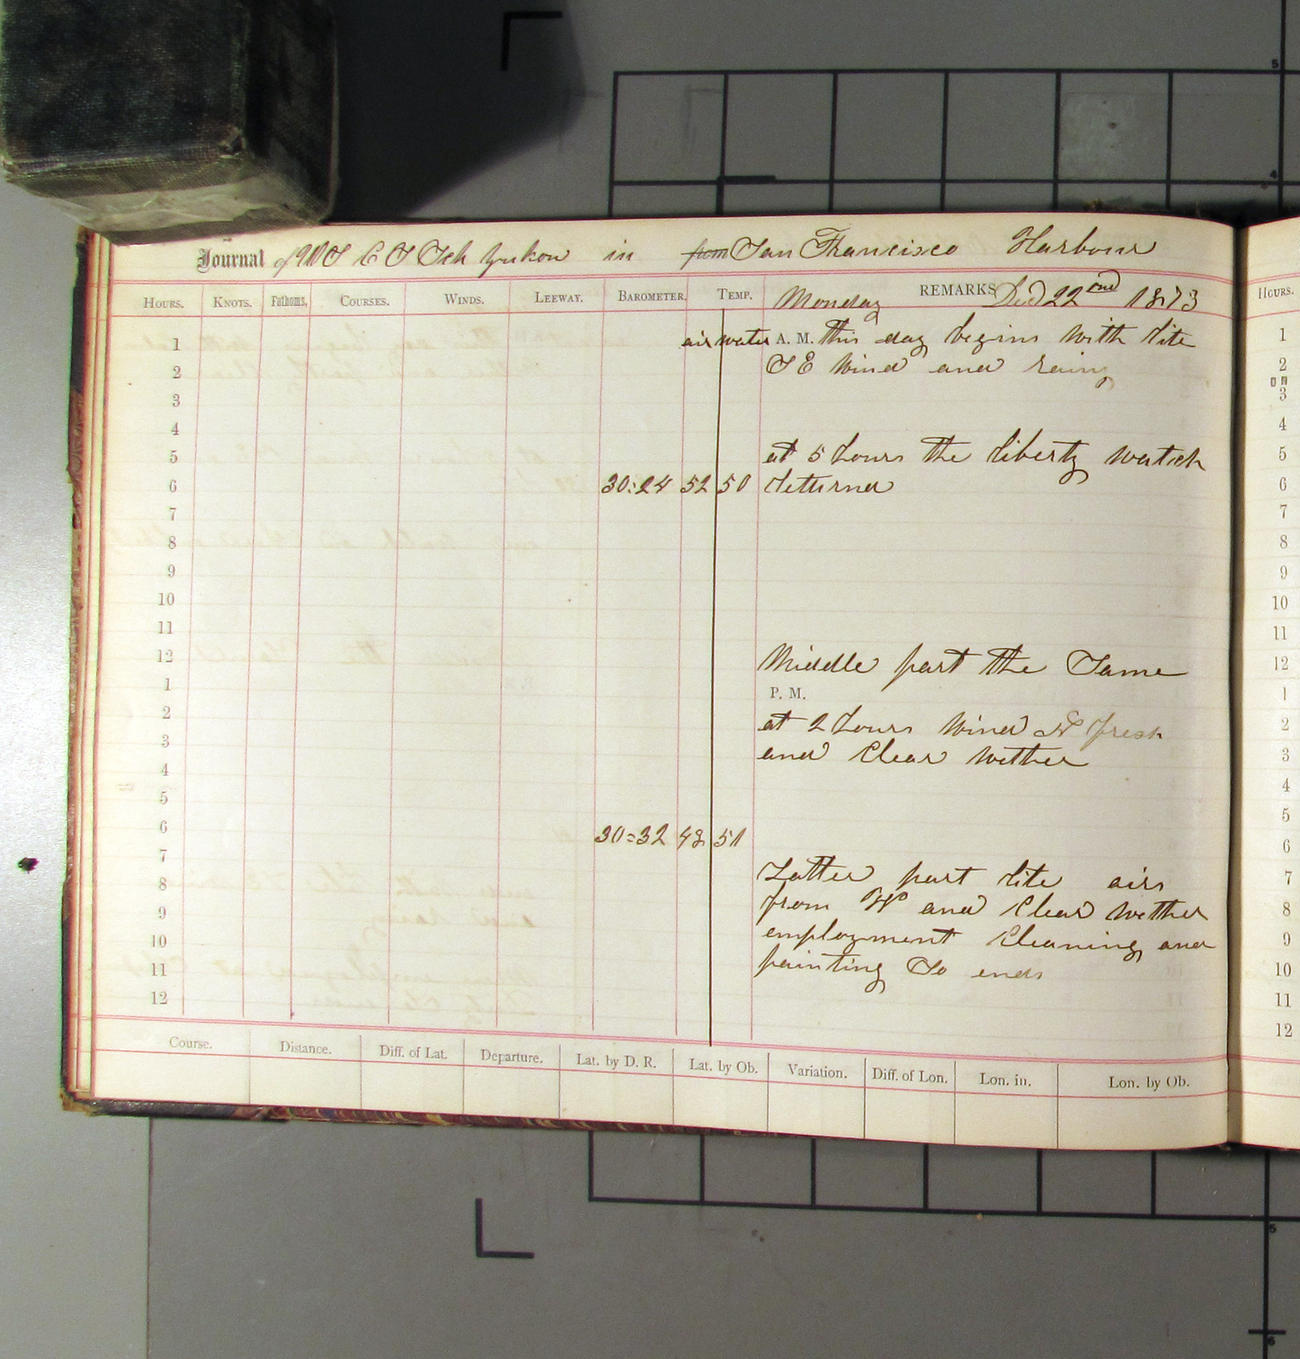 Journal of U S C S Sch Yukon in from San Francisco Harbour
HOURS. KNOTS. Fathoms. COURSES. WINDS. LEEWAY. BAROMETER. TEMP. Monday REMARKS Decb 22nd 1873 HOURS.
1 air water A. M. this day begins with lite 1
2 S E wind and rainy 2
3 3
4 4
5 at 5 hours the liberty watch 5
6 30:24 52 50 retturned 6
7 7
8 8
9 9
10 10
11 11
12 Middle part the Same 12
1 P. M. 1
2 at 2 hours wind N fresh 2
3 and Clear wether 3
4 4
5 5
6 30=32 48 51 6
7 Latter part lite airs 7
8 from W and Clear wether 8
9 employment Cleaning and 9
10 painting So ends 10
11 11
12 12
Course. Distance. Diff. of Lat. Departure. Lat. by D. R. Lat. by Ob. Variation. Diff. of Lon. Lon. in. Lon. by Ob.
5
4
5
6